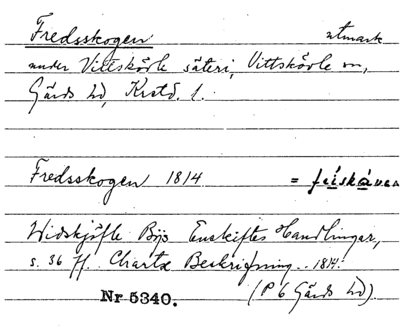 Fredsskogen utmark
under Vittskövle säteri, Vittskövle sn,
Gärds hd, Krstd. l.
Fredsskogen 1814 =
Widskjöfle Bys Enskiftes Handlingar,
s. 36 ff. Charta Beskrifning .. 1814.
Nr 5340. (P 6 Gärds hd).